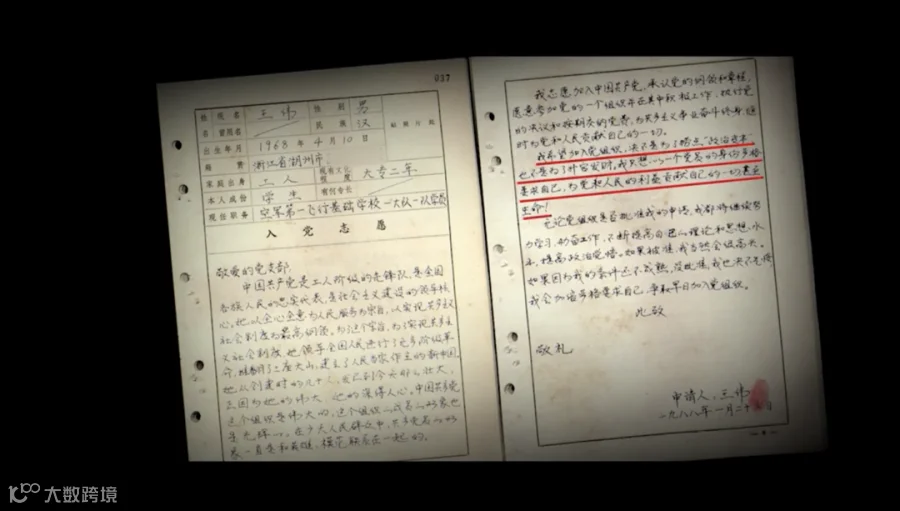 037
姓 现名 王伟 性别 男
名 曾用名 民族 汉 贴照片处
出生年月 1968年4月10日
籍贯 浙江省湖州市
家庭出身 工人 现有文化程度 大专二年
本人成份 学生 有何专长
现任职务 空军第一飞行基础学校一大队一队学员
入党志愿
敬爱的党支部:
中国共产党是工人阶级的先锋队,是全国
各族人民的忠实代表,是社会主义建设的领导核
心,她以全心全意为人民服务为宗旨,以实现共产主义
社会制度为最高纲领。为了这个宗旨,为了实现共产主
义社会制度,她领导全国人民进行了
命,推翻了三座大山,建立了人民当家作主的新中国。
她从创建时的几十人,发展到今天那么壮大,
正因为她的伟大,她的深得人心。中国共产党
这个组织是伟大的,这个组织
是光辉
一直是和英雄、模范联系在一起的。
我志愿加入中国共产党,承认党的纲领和章程,
愿意参加党的一个组织并在其中积极工作,执行党
的决议和按期交纳党费,为共产主义事业奋斗终身,随
时为党和人民贡献自己的一切。
我希望加入党组织,决不是为了捞点“政治资本”
也不是为了升官发财,我只想以一个党员的身份严格
要求自己,为党和人民的利益贡献自己的一切甚至
生命!
无论党组织是否批准我的申请,我都将继续努
力学习,勤奋工作,不断提高自己的理论和思想水
平,提高政治觉悟。如果被批准,我当然会很高兴。
如果因为我的条件还不成熟,没批准,我也决不气馁,
我会加倍严格要求自己,争取早日加入党组织。
此致
敬礼
申请人:王伟
一九八八年一月二十 日
大数跨境